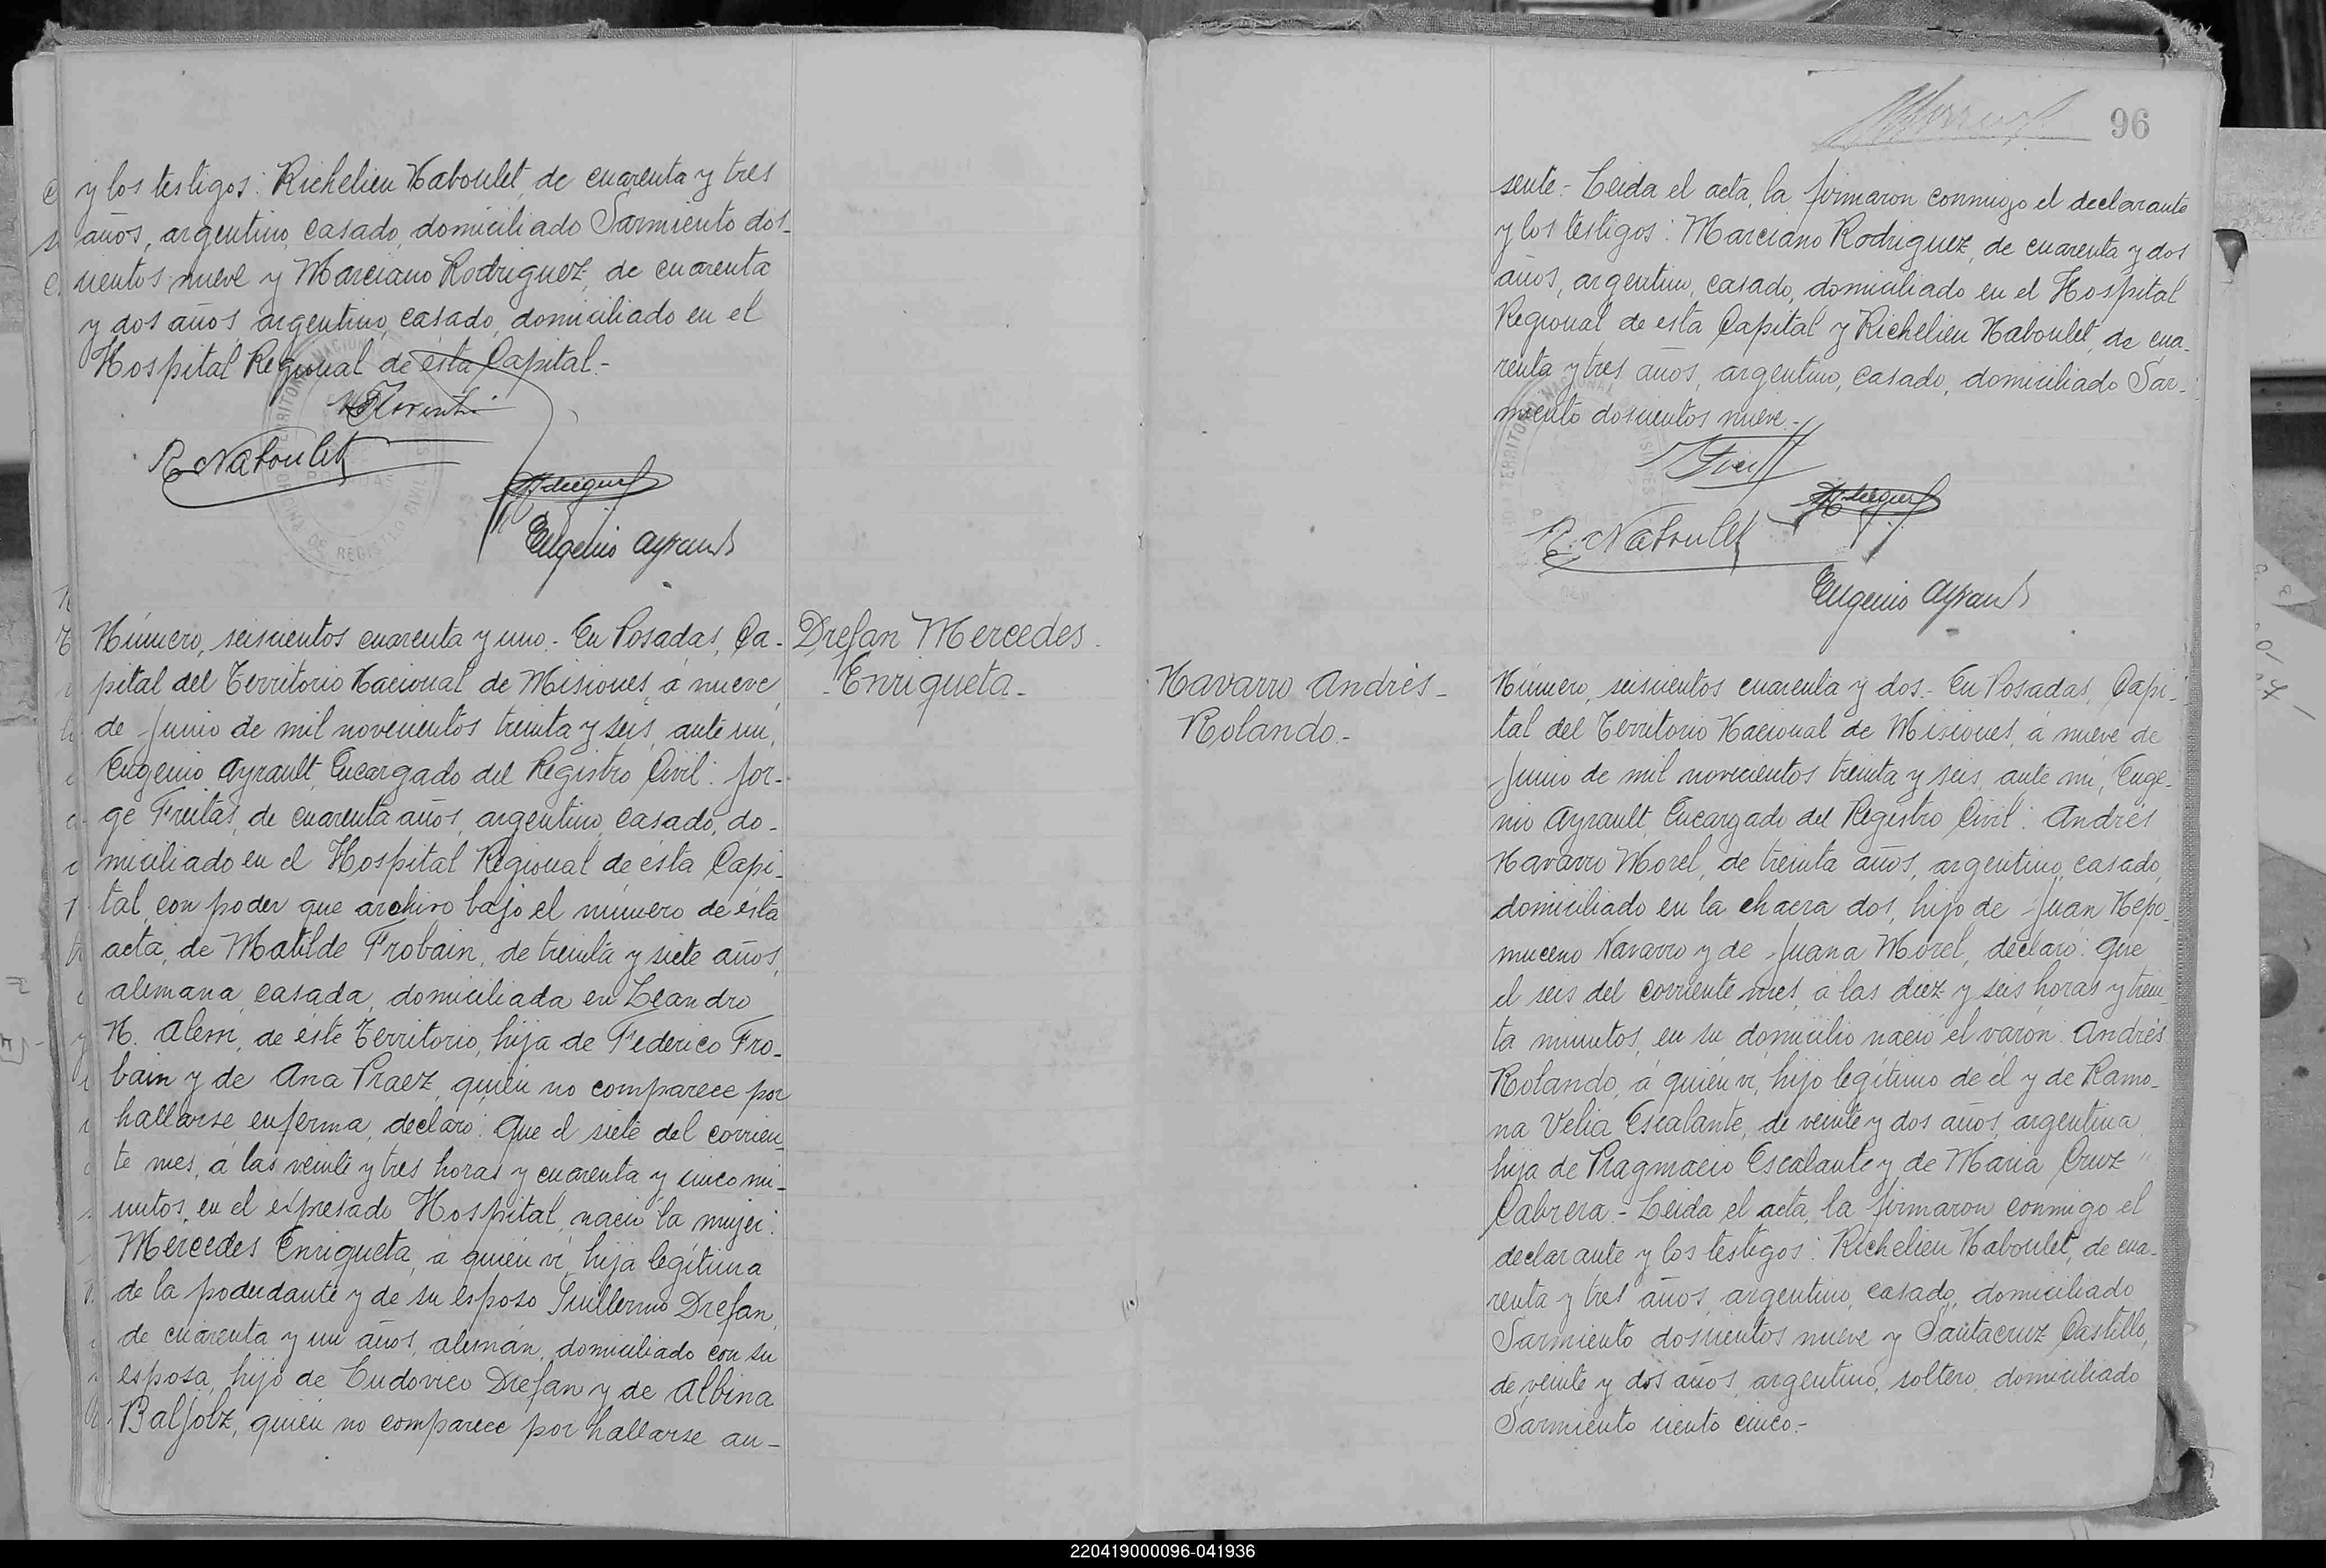 y los testigos: Richelieu Naboulet, de cuarenta y tres
años, argentino, casado, domiciliado Sarmiento dos-
cientos nueve y Marciano Rodriguez, de cuarenta
y dos años, argentino, casado, domiciliado en el
Hospital Regional de ésta Capital.-
R. Naboulet
Eugenio Ayrault
Número, seiscientos cuarenta y uno.- En Posadas, Ca-
pital del Territorio Nacional de Misiones, á nueve
de Junio de mil novecientos treinta y seis, ante mi,
Eugenio Ayrault, Encargado del Registro Civil: Jor-
ge Freitas, de cuarenta años, argentino, casado, do-
miciliado en el Hospital Regional de ésta Capi-
tal, con poder que archivo bajo el número de ésta
acta, de Matilde Frobain, de treinta y siete años,
alemana, casada, domiciliada en Leandro
N. Alem, de éste Territorio, hija de Federico Fro-
bain y de Ana Praez, quién no comparece por
hallarse enferma, declaró: Que el siete del corrien-
te mes, á las veinte y tres horas y cuarenta y cinco mi-
nutos, en el expresado Hospital, nació la mujer:
Mercedes Enriqueta, á quién ví, hija legítima
de la poderdante y de su esposo Guillermo Drefan,
de cuarenta y un años, alemán, domiciliado con su
esposa, hijo de Ludovico Drefan y de Albina
Baljolz, quién no comparece por hallarse au-
Drefan Mercedes
-Enriqueta-
96
sente.- Leida el acta, la firmaron conmigo el declarante
y los testigos: Marciano Rodriguez, de cuarenta y dos
años, argentino, casado, domiciliado en el Hospital
Regional de ésta Capital y Richelieu Naboulet, de cua-
renta y tres años, argentino, casado, domiciliado Sar-
miento doscientos nueve.-
R. Naboulet
Eugenio Ayrault
Navarro Andrés-
Rolando.-
Número, seiscientos cuarenta y dos.- En Posadas, Capi-
tal del Territorio Nacional de Misiones, á nueve de
Junio de mil novecientos treinta y seis, ante mi, Euge-
nio Ayrault, Encargado del Registro Civil: Andrés
Navarro Morel, de treinta años, argentino, casado,
domiciliado en la chacra dos, hijo de Juan Nepo-
muceno Navarro y de Juana Morel, declaró: Que
el seis del corriente mes, á las diez y seis horas y trein-
ta minutos, en su domicilio nació el varón: Andrés
Rolando, á quién ví, hijo legítimo de él y de Ramo-
na Velia Escalante, de veinte y dos años, argentina,
hija de Pragmacio Escalante y de Maria Cruz
Cabrera.- Leida el acta, la firmaron conmigo el
declarante y los testigos: Richelieu Naboulet, de cua-
renta y tres años, argentino, casado, domiciliado
Sarmiento doscientos nueve y Santacruz Castillo,
de veinte y dos años, argentino, soltero, domiciliado
Sarmiento ciento cinco.-
220419000096-041936